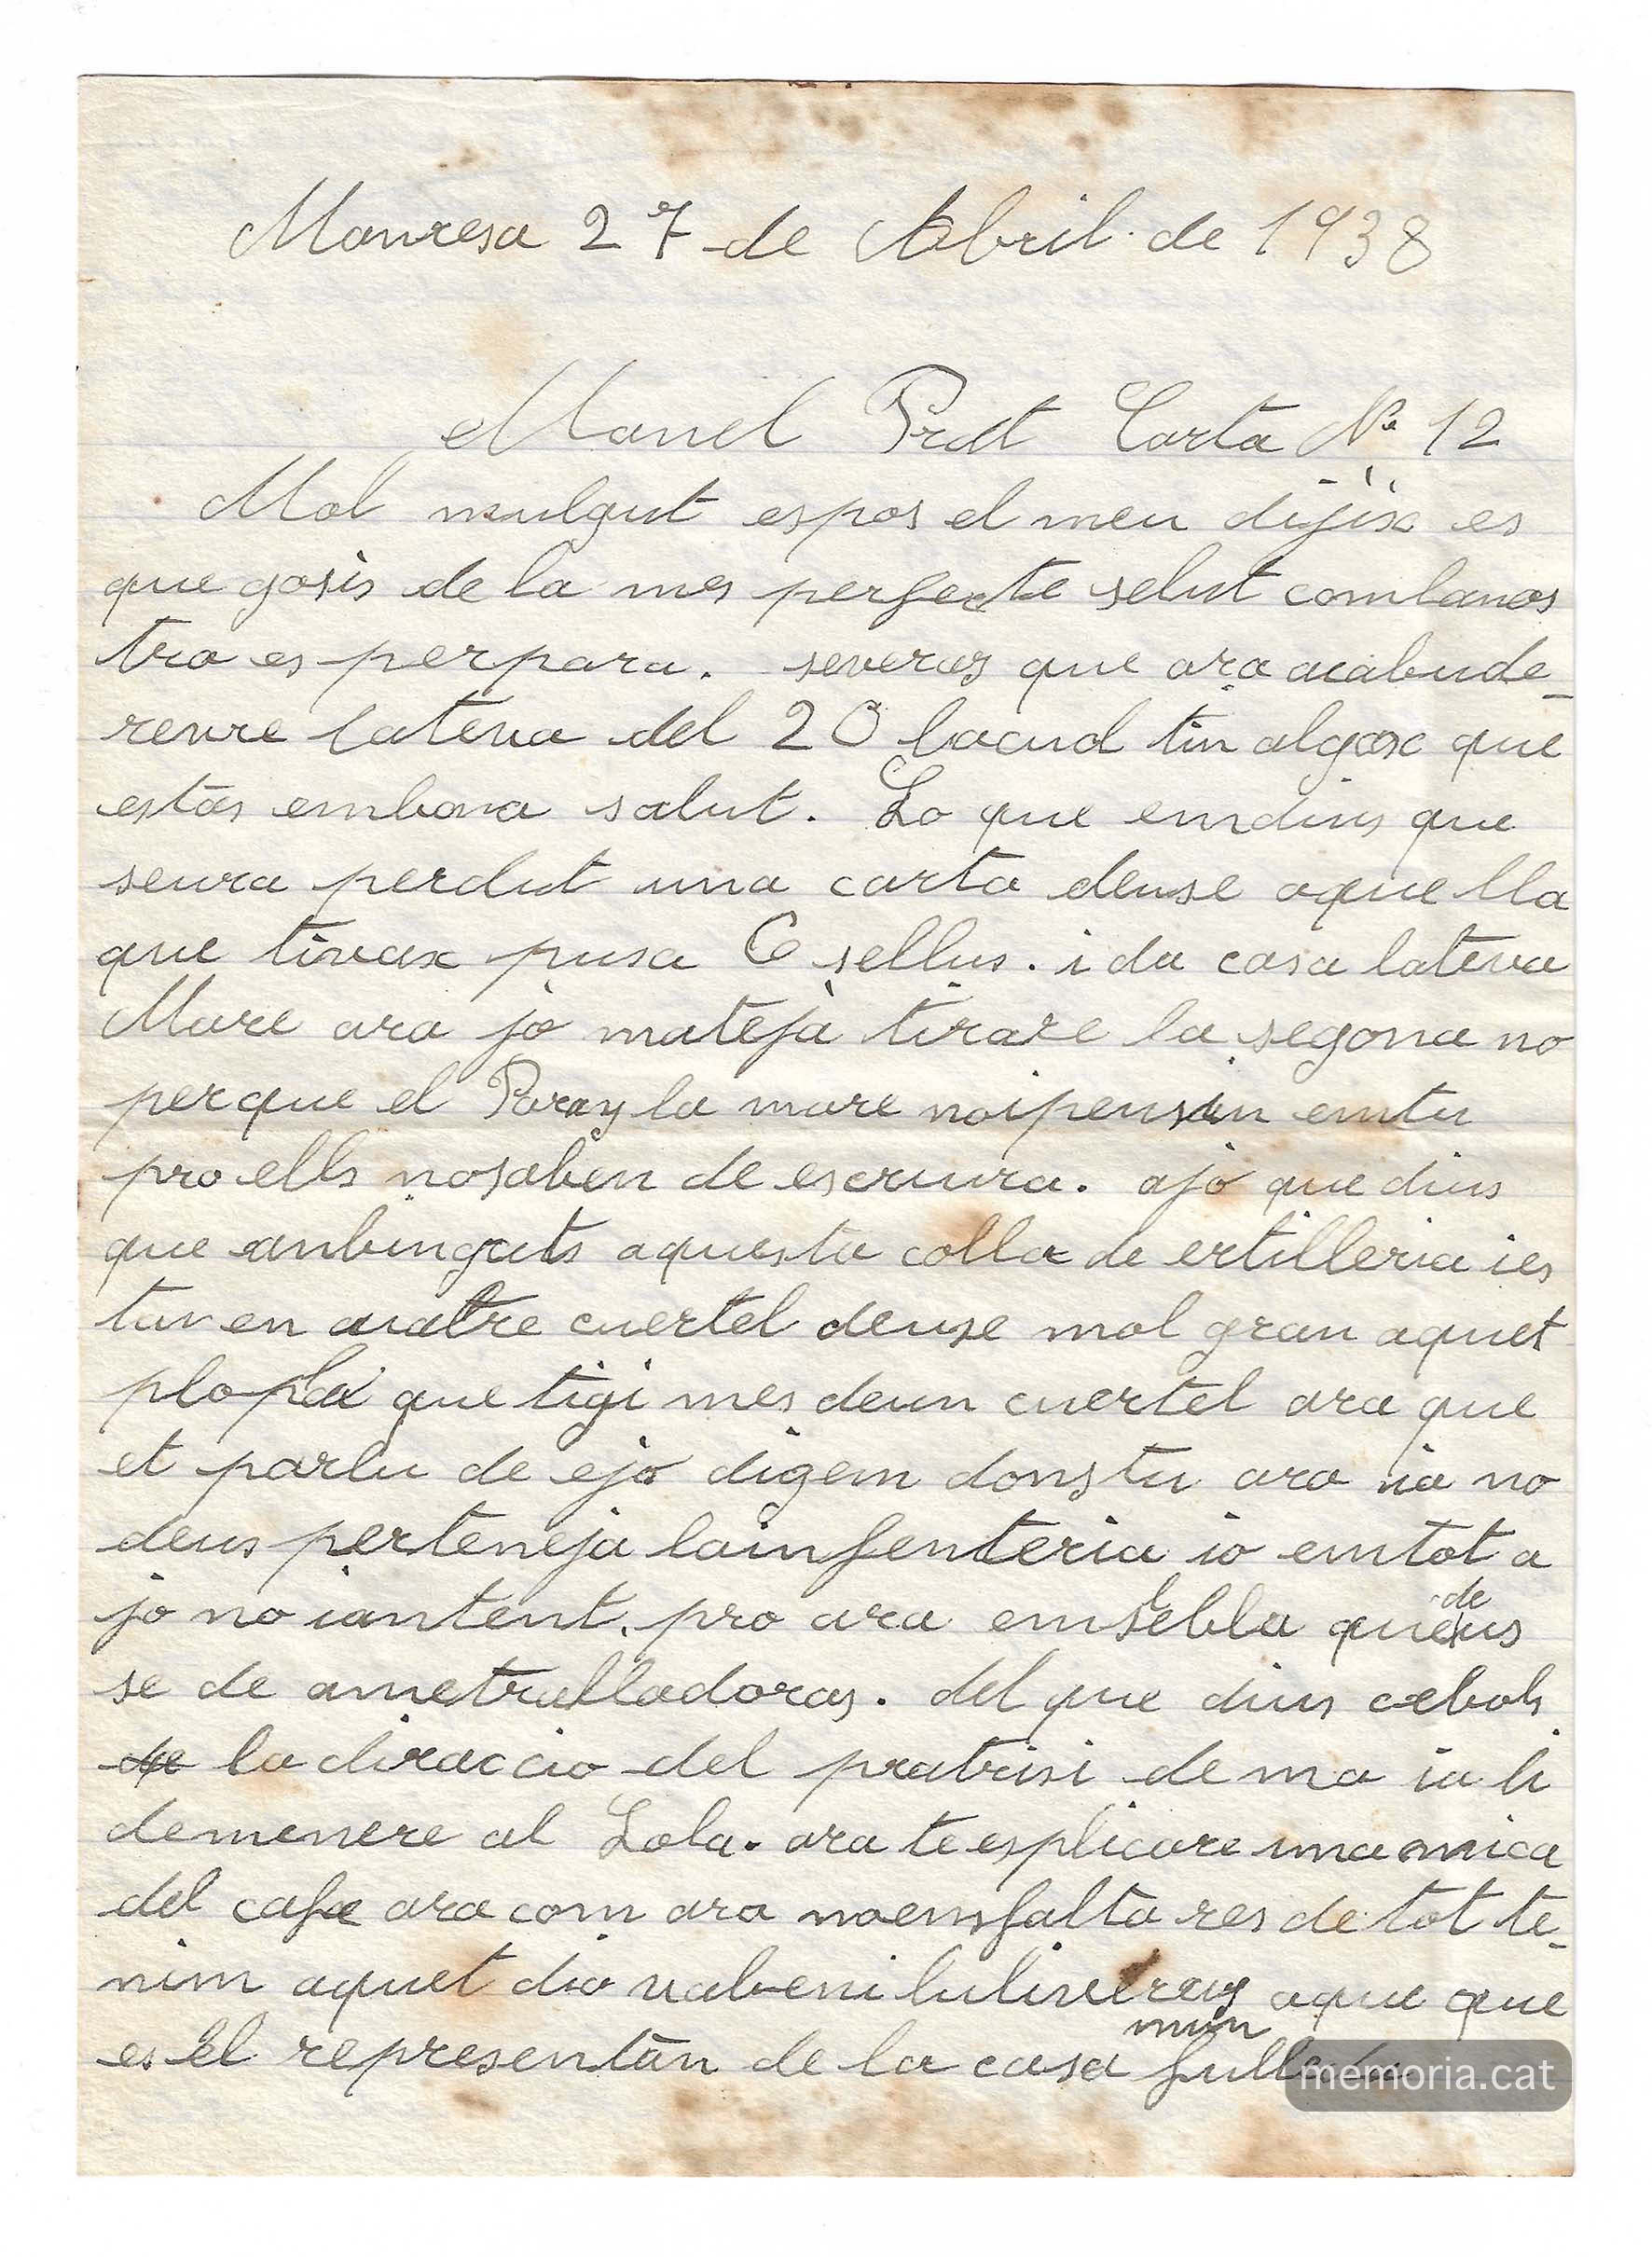 Manresa 27 de Abril de 1938
Manel Prat Carta Nº 12
Mol vulgut espos el meu dijix es
que gosis de la mes perfecte selut comlanos
tra es perpara. severas que ara acabude
revre lateva del 20 lacual tin algox que
estas embona salut. Lo que emdius que
seura perdut una carta deuse aquella
que tivax pusa 6 sellus. i da casa lateva
Mare ara jo mateja tirare la segona no
perque el Paray la mare noipensin emtu
pro ells nosaben de escriura. ajo que dius
que anbinguts aquesta colla de ertilleria ies
tan en autre cuertel deuse mol gran aquet
plopla que tigi mes deun cuertel ara que
et parlu de ejo digem donstu ara ia no
deus perteneja lainfenteria io emtot a
jo no iantent. pro ara emsebla que deus
se de ametralladoras. del que dius cebols
de la diraccio del pratrisi dema ia li
demenere al Lola. ara te esplicare unamica
del cafe ara com ara noemsfalta res de tot te
nim aquet dia vabeni luliveray aque que
es el representan de la casa mun fullada
memoria.cat